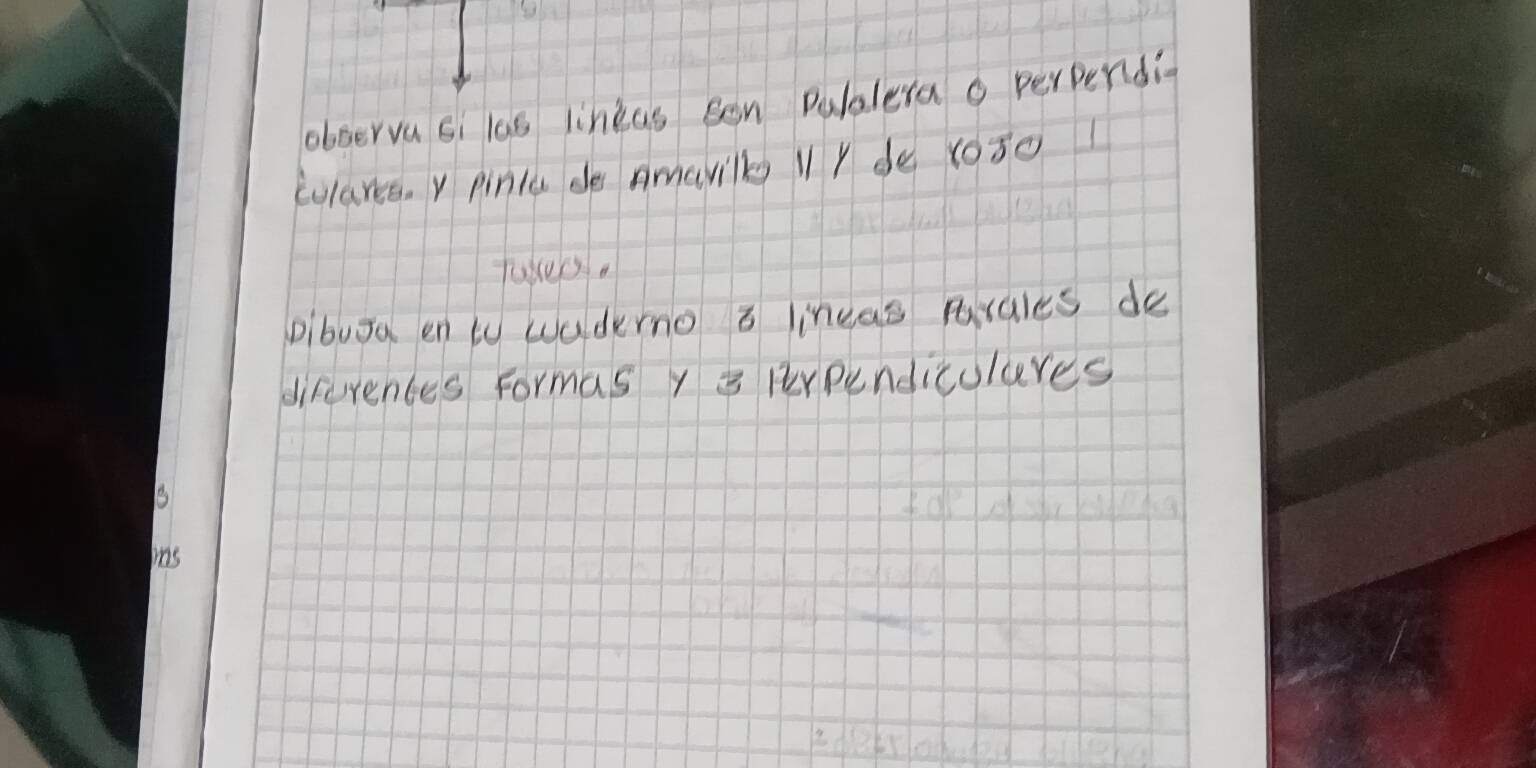 observa si las lineas son Palalera o perpendi-
culares. y pinta de Amarillo || y de rojo |
Tarea.
Dibuja en tu cuaderno 3 lineas Parales de
diferentes Formas y 3 Perpendiculares
3
ins